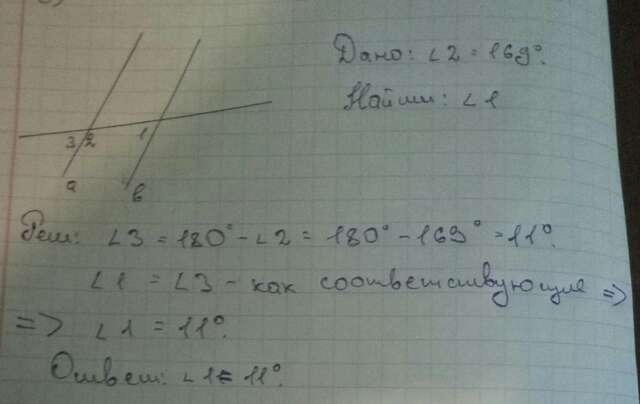 Дано: ∠2 = 169°.
Найти: ∠1
3 2 1
a
b
Реш: ∠3 = 180° - ∠2 = 180° - 169° = 11°.
∠1 = ∠3 - как соответствующие =>
=> ∠1 = 11°.
Ответ: ∠1 = 11°.